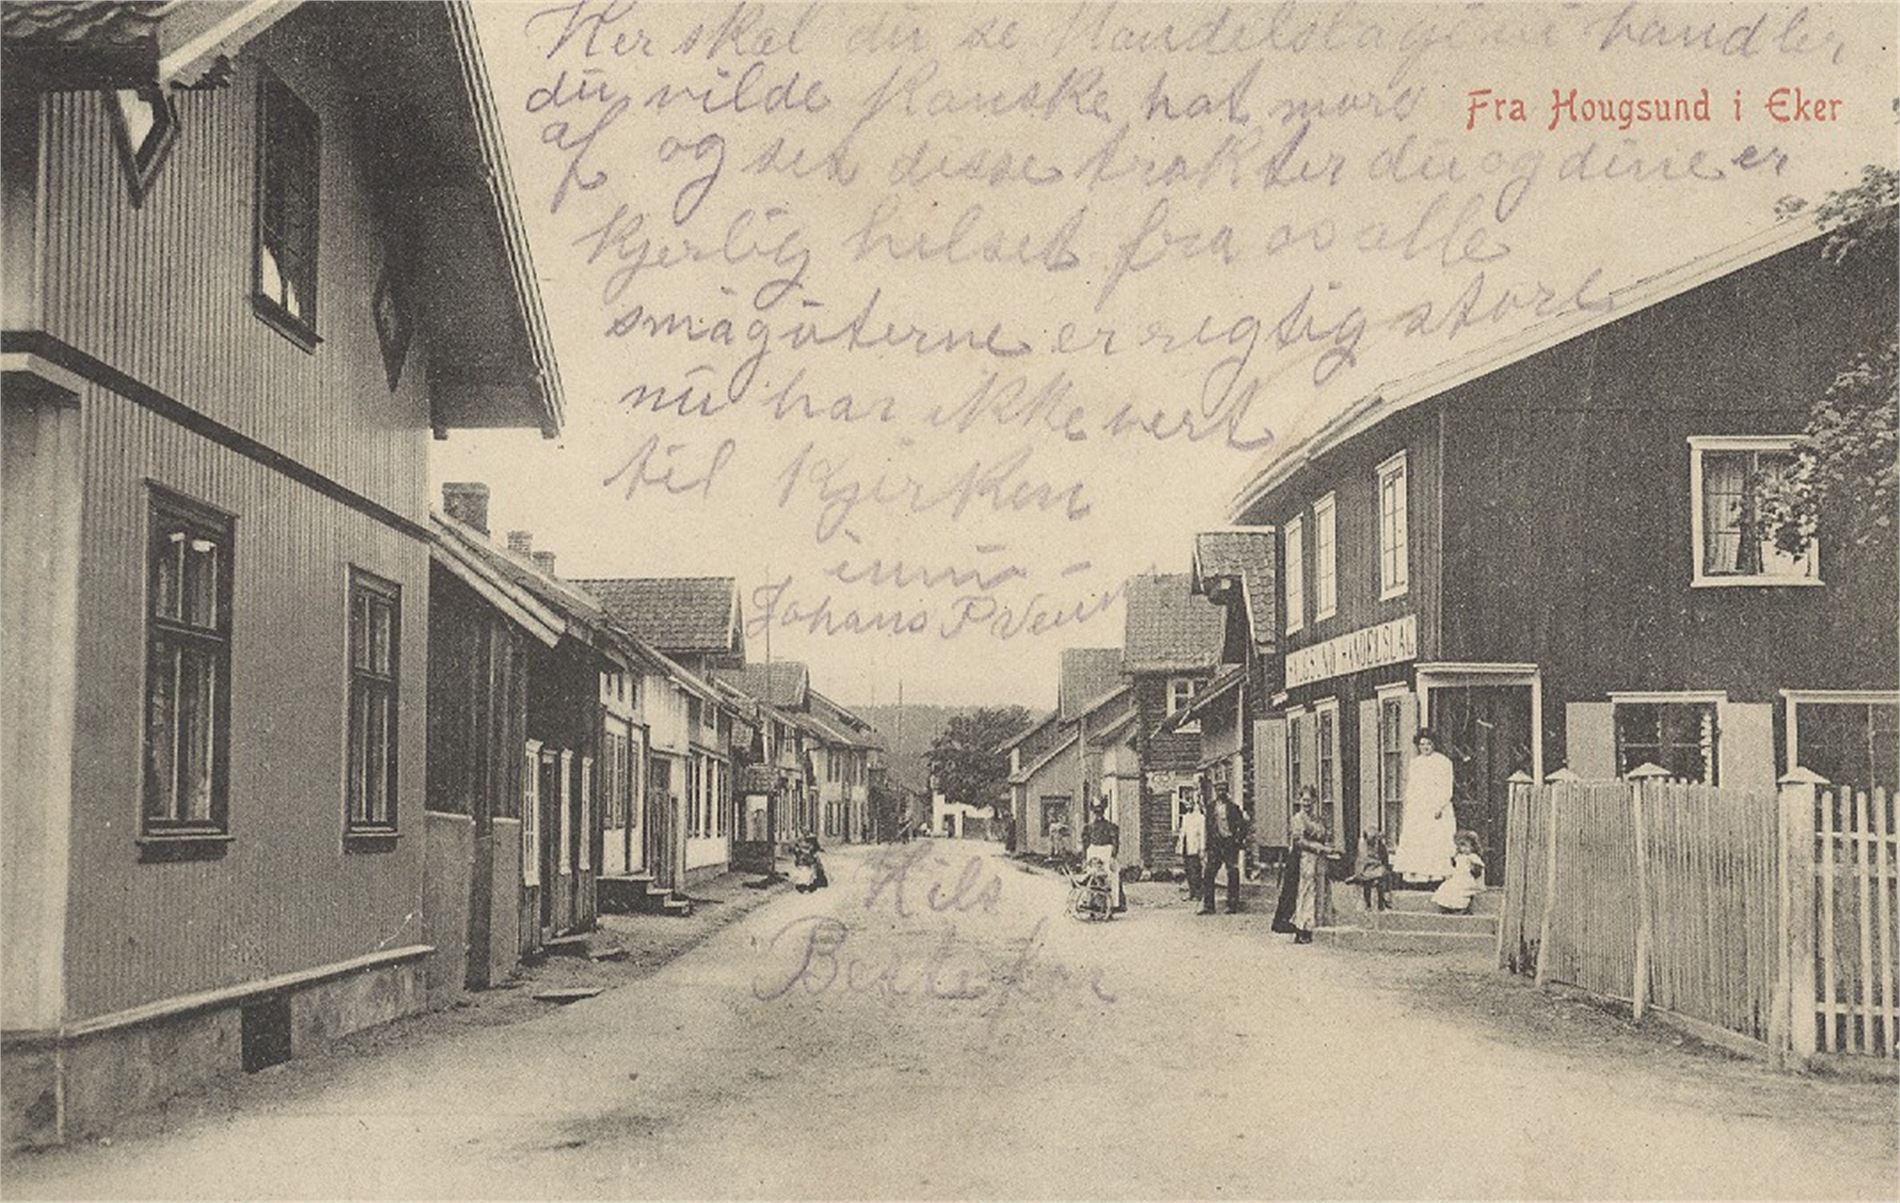 Her skal du se Handelslaget vi handler
du vilde kanske hat moro
Fra Hougsund i Eker
af og set disse trakter du og dine er
kjerlig hilset fra os alle
smågüterne er regtig store
nü har ikke vert
til kjirken
ennü -
Johans P
HOUGSUND HANDELSLAG
Hils
Bestefar